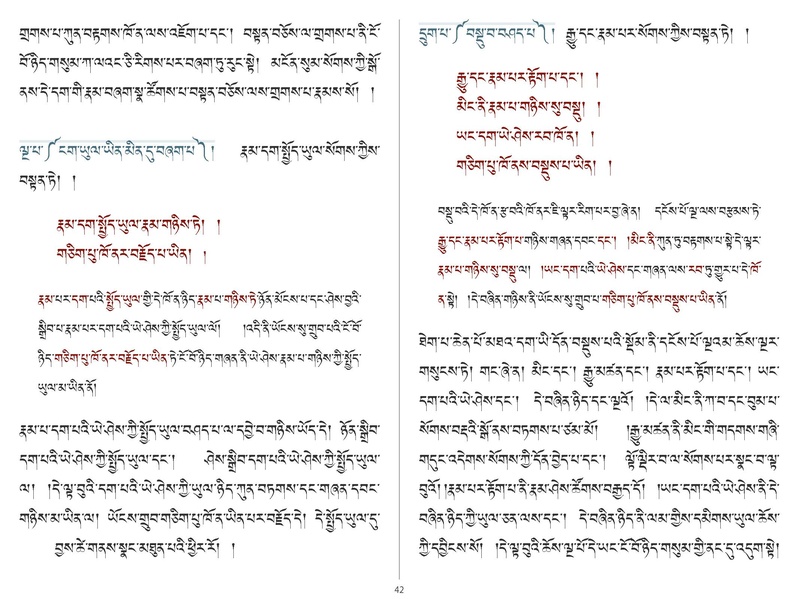 གྲགས་པ་ཀུན་བརྟགས་ཁོ་ན་ལས་འཇོག་པ་དང་། བསྟན་བཅོས་ལ་གྲགས་པ་ནི་ངོ་
བོ་ཉིད་གསུམ་ག་ལའང་ཅི་རིགས་པར་བཞག་ཏུ་རུང་སྟེ། མངོན་སུམ་སོགས་ཀྱི་སྒོ་
ནས་དེ་དག་གི་རྣམ་བཞག་སྣ་ཚོགས་པ་བསྟན་བཅོས་ལས་གྲགས་པ་རྣམས་སོ། །
ལྔ་པ་༼ངག་ཡུལ་ཡིན་མིན་དུ་བཞག་པ་༽། རྣམ་དག་སྤྱོད་ཡུལ་སོགས་ཀྱིས་
བསྟན་ཏེ། །
རྣམ་དག་སྤྱོད་ཡུལ་རྣམ་གཉིས་ཏེ། །
གཅིག་པུ་ཁོ་ནར་བརྗོད་པ་ཡིན། །
རྣམ་པར་དག་པའི་སྤྱོད་ཡུལ་གྱི་དེ་ཁོ་ན་ཉིད་རྣམ་པ་གཉིས་ཏེ་ཉོན་མོངས་པ་དང་ཤེས་བྱའི་
སྒྲིབ་པ་རྣམ་པར་དག་པའི་ཡེ་ཤེས་ཀྱི་སྤྱོད་ཡུལ་ལོ། །འདི་ནི་ཡོངས་སུ་གྲུབ་པའི་ངོ་བོ་
ཉིད་གཅིག་པུ་ཁོ་ནར་བརྗོད་པ་ཡིན་ཏེ་ངོ་བོ་ཉིད་གཞན་ནི་ཡེ་ཤེས་རྣམ་པ་གཉིས་ཀྱི་སྤྱོད་
ཡུལ་མ་ཡིན་ནོ།
རྣམ་པ་དག་པའི་ཡེ་ཤེས་ཀྱི་སྤྱོད་ཡུལ་བཤད་པ་ལ་དབྱེ་བ་གཉིས་ཡོད་དེ། ཉོན་སྒྲིབ་
དག་པའི་ཡེ་ཤེས་ཀྱི་སྤྱོད་ཡུལ་དང་། ཤེས་སྒྲིབ་དག་པའི་ཡེ་ཤེས་ཀྱི་སྤྱོད་ཡུལ་
ལ། །དེ་ལྟ་བུའི་དག་པའི་ཡེ་ཤེས་ཀྱི་ཡུལ་ཉིད་ཀུན་བཏགས་དང་གཞན་དབང་
གཉིས་མ་ཡིན་ལ། ཡོངས་གྲུབ་གཅིག་པུ་ཁོ་ན་ཡིན་པར་བརྗོད་དེ། དེ་སྤྱོད་ཡུལ་དུ་
བྱས་ཚེ་གནས་སྣང་མཐུན་པའི་ཕྱིར་རོ། །
དྲུག་པ་༼བསྡུ་བ་བཤད་པ་༽། རྒྱུ་དང་རྣམ་པར་སོགས་ཀྱིས་བསྟན་ཏེ། །
རྒྱུ་དང་རྣམ་པར་རྟོག་པ་དང་། །
མིང་ནི་རྣམ་པ་གཉིས་སུ་བསྡུ། །
ཡང་དག་ཡེ་ཤེས་རབ་ཁོ་ན། །
གཅིག་པུ་ཁོ་ནས་བསྡུས་པ་ཡིན། །
བསྡུ་བའི་དེ་ཁོ་ན་རྩ་བའི་ཁོ་ནར་ཇི་ལྟར་རིག་པར་བྱ་ཞེ་ན། དངོས་པོ་ལྔ་ལས་བརྩམས་ཏེ་
རྒྱུ་དང་རྣམ་པར་རྟོག་པ་གཉིས་གཞན་དབང་དང་། །མིང་ནི་ཀུན་ཏུ་བརྟགས་པ་སྟེ་དེ་ལྟར་
རྣམ་པ་གཉིས་སུ་བསྡུ་ལ། །ཡང་དག་པའི་ཡེ་ཤེས་དང་གཞན་ལས་རབ་ཏུ་གྱུར་པ་དེ་ཁོ་
ན་སྟེ། །དེ་བཞིན་གཉིས་ནི་ཡོངས་སུ་གྲུབ་པ་གཅིག་པུ་ཁོ་ནས་བསྡུས་པ་ཡིན་ནོ།
ཐེག་པ་ཆེན་པོ་མཐའ་དག་ཡི་དོན་བསྡུས་པའི་སྡོམ་ནི་དངོས་པོ་ལྔའམ་ཆོས་ལྔར་
གསུངས་ཏེ། གང་ཞེ་ན། མིང་དང་། རྒྱུ་མཚན་དང་། རྣམ་པར་རྟོག་པ་དང་། ཡང་
དག་པའི་ཡེ་ཤེས་དང་། དེ་བཞིན་ཉིད་དང་ལྔའོ། །དེ་ལ་མིང་ནི་ཀ་བ་དང་བུམ་པ་
སོགས་བརྡའི་སྒོ་ནས་བཏགས་པ་ཙམ་མོ། །རྒྱུ་མཚན་ནི་མིང་གི་གདགས་གཞི་
གདུང་འདེགས་སོགས་ཀྱི་དོན་བྱེད་པ་དང་། ལྟོ་ལྡིར་བ་ལ་སོགས་པར་སྣང་བ་ལྟ་
བུའོ། །རྣམ་པར་རྟོག་པ་ནི་རྣམ་ཤེས་ཚོགས་བརྒྱད་དོ། །ཡང་དག་པའི་ཡེ་ཤེས་ནི་དེ་
བཞིན་ཉིད་ཀྱི་ཡུལ་ཅན་ལས་དང་། དེ་བཞིན་ཉིད་ནི་ལམ་གྱིས་དམིགས་ཡུལ་ཆོས་
ཀྱི་དབྱིངས་སོ། །དེ་ལྟ་བུའི་ཆོས་ལྔ་པོ་དེ་ཡང་ངོ་བོ་ཉིད་གསུམ་གྱི་ནང་དུ་འདུག་སྟེ།
42